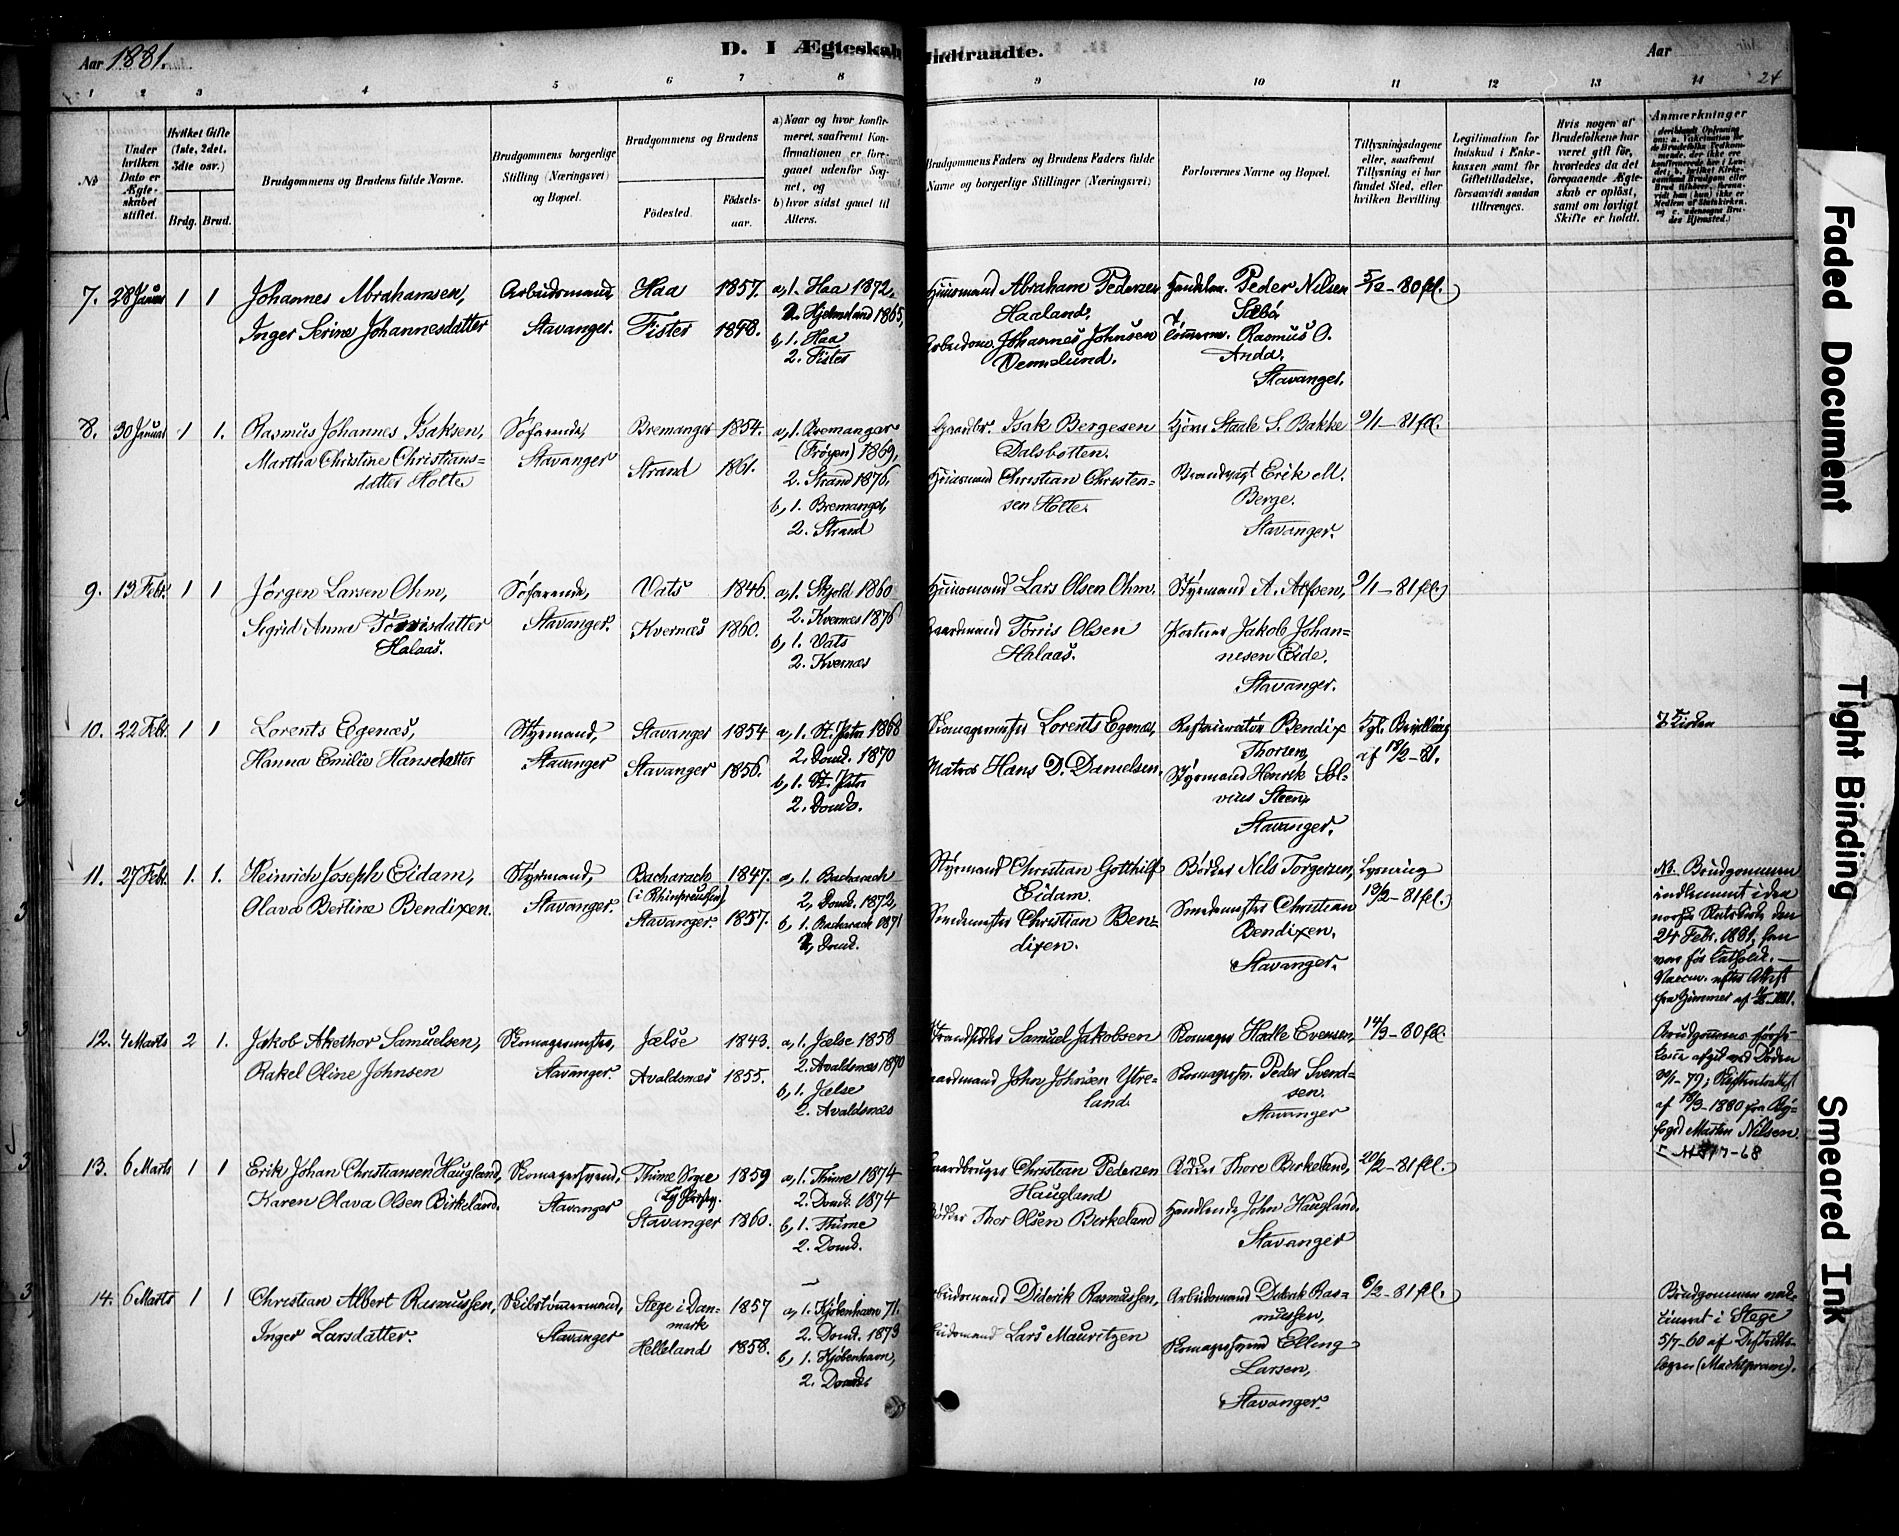 Aar 1881.
D. I Ægteskab
Indtraadte.
Aar
24
1 2 3 4 5 6 7 8 9 10 11 12 13 14
№
Under hvilken Dato er Ægteskabet stiftet.
Hvilket Gifte (1ste, 2det, 3die osv.)
Brdg. Brud.
Brudgommens og Brudens fulde Navne.
Brudgommens borgerlige Stilling (Næringsvei) og Bopæl.
Brudgommens og Brudens
Fødested.
Fødselsaar.
a) Naar og hvor konfirmeret, saafremt Konfirmationen er foregaaet udenfor Sognet, og
b) hvor sidst gaaet til Alters.
Brudgommens Faders og Brudens Faders fulde Navne og borgerlige Stillinger (Næringsvei)
Forlovernes Navne og Bopæl.
Tillysningsdagene eller, saafremt Tillysning ei har fundet Sted, efter hvilken Bevilling.
Legitimation for Indskud i Enkekassen samt for Giftetilladelse, forsaavidt saadan tiltrænges.
Hvis nogen af Brudefolkene har været gift før, hvorledes da det foregaaende Ægteskab er opløst, samt om lovligt Skifte er holdt.
Anmærkninger
7. 28 Januar 1 1
Johannes Abrahamsen,
Inger Serine Johannesdatter
Arbeidsmand,
Stavanger.
Haa 1857.
Fister 1848.
a, 1. Haa 1872,
2. Hjelmeland 1865,
b, 1. Haa
2. Fister
Huusmand Abraham Pedersen
Haaland,
Arbeidsm. Johannes Johnsen
Handelsm. Peder Nilsen
Sæbø,
Tømmerm. Rasmus O.
Anda.
Stavanger.
5/12 - 80 fl.
8. 30 Januar 1 1.
Rasmus Johannes Isaksen,
Martha Christine Christians=
datter Holte
Søfarende,
Stavanger
Bremanger 1854.
Strand 1861.
a, 1. Bremanger
(Frøyen) 1869,
2. Strand 1876.
b, 1. Bremanger,
2. Strand
Gaardbr. Isak Bergesen
Dalsbotten.
Huusmand Christian Christen=
sen Holte.
Staale S. Bakke
Brandvagt Erik M.
Berge.
Stavanger.
9/1 - 81 fl.
9. 13 Febr. 1 1
Jørgen Larsen Ohm,
Sigrid Anna Tørrisdatter
Halaas.
Søfarende,
Stavanger.
Vats 1846.
Kvernæs 1860.
a, 1. Skjold 1860
2. Kvernæs 1876
b, 1. Vats
2. Kvernæs
Huusmand Lars Olsen Ohm.
Gaardmand Tørris Olsen
Halaas.
Styrmand A. Axelsen,
Jakob Johan=
nesen Eide.
Stavanger.
9/1 - 81 fl.
10. 22 Febr. 1 1
Lorents Egenæs,
Hanna Emilie Hansdatter
Styrmand,
Stavanger
Stavanger 1854
Stavanger 1856.
a, 1. St. Petri 1868
2. Domk. 1870
b, 1. St. Petri
2. Domk.
Skomagermester Lorents Egenæs,
Matros Hans D. Danielsen.
Restauratør Bendix
Thorsen,
Styrmand Henrik Søl=
vius Steen,
Stavanger.
Kgl. Bevilling
af 18/2 - 81.
I Kirken
11. 27 Febr. 1. 1.
Heinrich Joseph Eidam,
Olava Bertine Bendixen.
Styrmand,
Stavanger.
Bacharach 1847.
(i Rhinpreussen)
Stavanger. 1857.
a, 1. Bacharach
2. Domk. 1872,
b, 1. Bacharach 1871
2, Domk.
Styrmand Christian Gotthilf
Eidam.
Smedemester Christian Ben=
dixen.
Bødker Nils Torgersen,
Smedemester Christian
Bendixen,
Stavanger.
Lysning
13/2 - 81 fl.
NB. Brudgommen
indlemmet i den
norske Statskirke den
24 Febr. 1881, han
var før Catholik. —
12. 4 Marts 2 1.
Jakob Akethor Samuelsen,
Rakel Oline Johnsen
Skomagermester,
Stavanger.
Jælse 1843.
Avaldsnæs 1855.
a, 1. Jælse 1858
2. Avaldsnæs 1870
b, 1. Jælse
2. Avaldsnæs
Strandsidder Samuel Jakobsen
Gaardmand John Johnsen Ytre=
land.
Skomager Hadle Evensen,
Skomagersv. Peder Svend=
sen.
Stavanger
14/3 - 80 fl.
Brudgommens første
Kone afgik ved Døden
30/1 - 77; Skifteattest
af 18/3 - 1880 fra By=
foged Morten Nilsen
13. 6 Marts 1 1
Erik Johan Christiansen Haugland,
Karen Olava Olsen Birkeland.
Skomagersvend,
Stavanger
Thime Sogn 1859
Stavanger 1860.
a, 1. Thime 1874
2. Domk. 1874
b, 1. Thime
2. Domk.
Gaardbruger Christian Pedersen
Haugland
Bødker Thor Olsen Berkeland
Bødker Thore Birkeland,
Handlende John Haugland.
Stavanger
20/2 - 81 fl.
14. 6 Marts 1 1
Christian Albert Rasmussen,
Inger Larsdatter.
Skibstømmermand,
Stavanger
Stege i Dan= 1857
mark
Helleland 1858.
a, 1. Kjøbenhavn 71.
2. Domk. 1873
b, 1. Kjøbenhavn,
2. Domk.
Arbeidsmand Diderik Rasmussen,
Lars Mauritzen
Arbeidsmand Diderik Ras=
mussen,
Skomagersvend Elling
Larsen,
Stavanger.
6/2 - 81 fl.
Brudgommen vak=
cineret i Stege
5/7 - 60 af Distrikts=
lægen (Machtprang).
Faded Document
Tight Binding
Smeared Ink